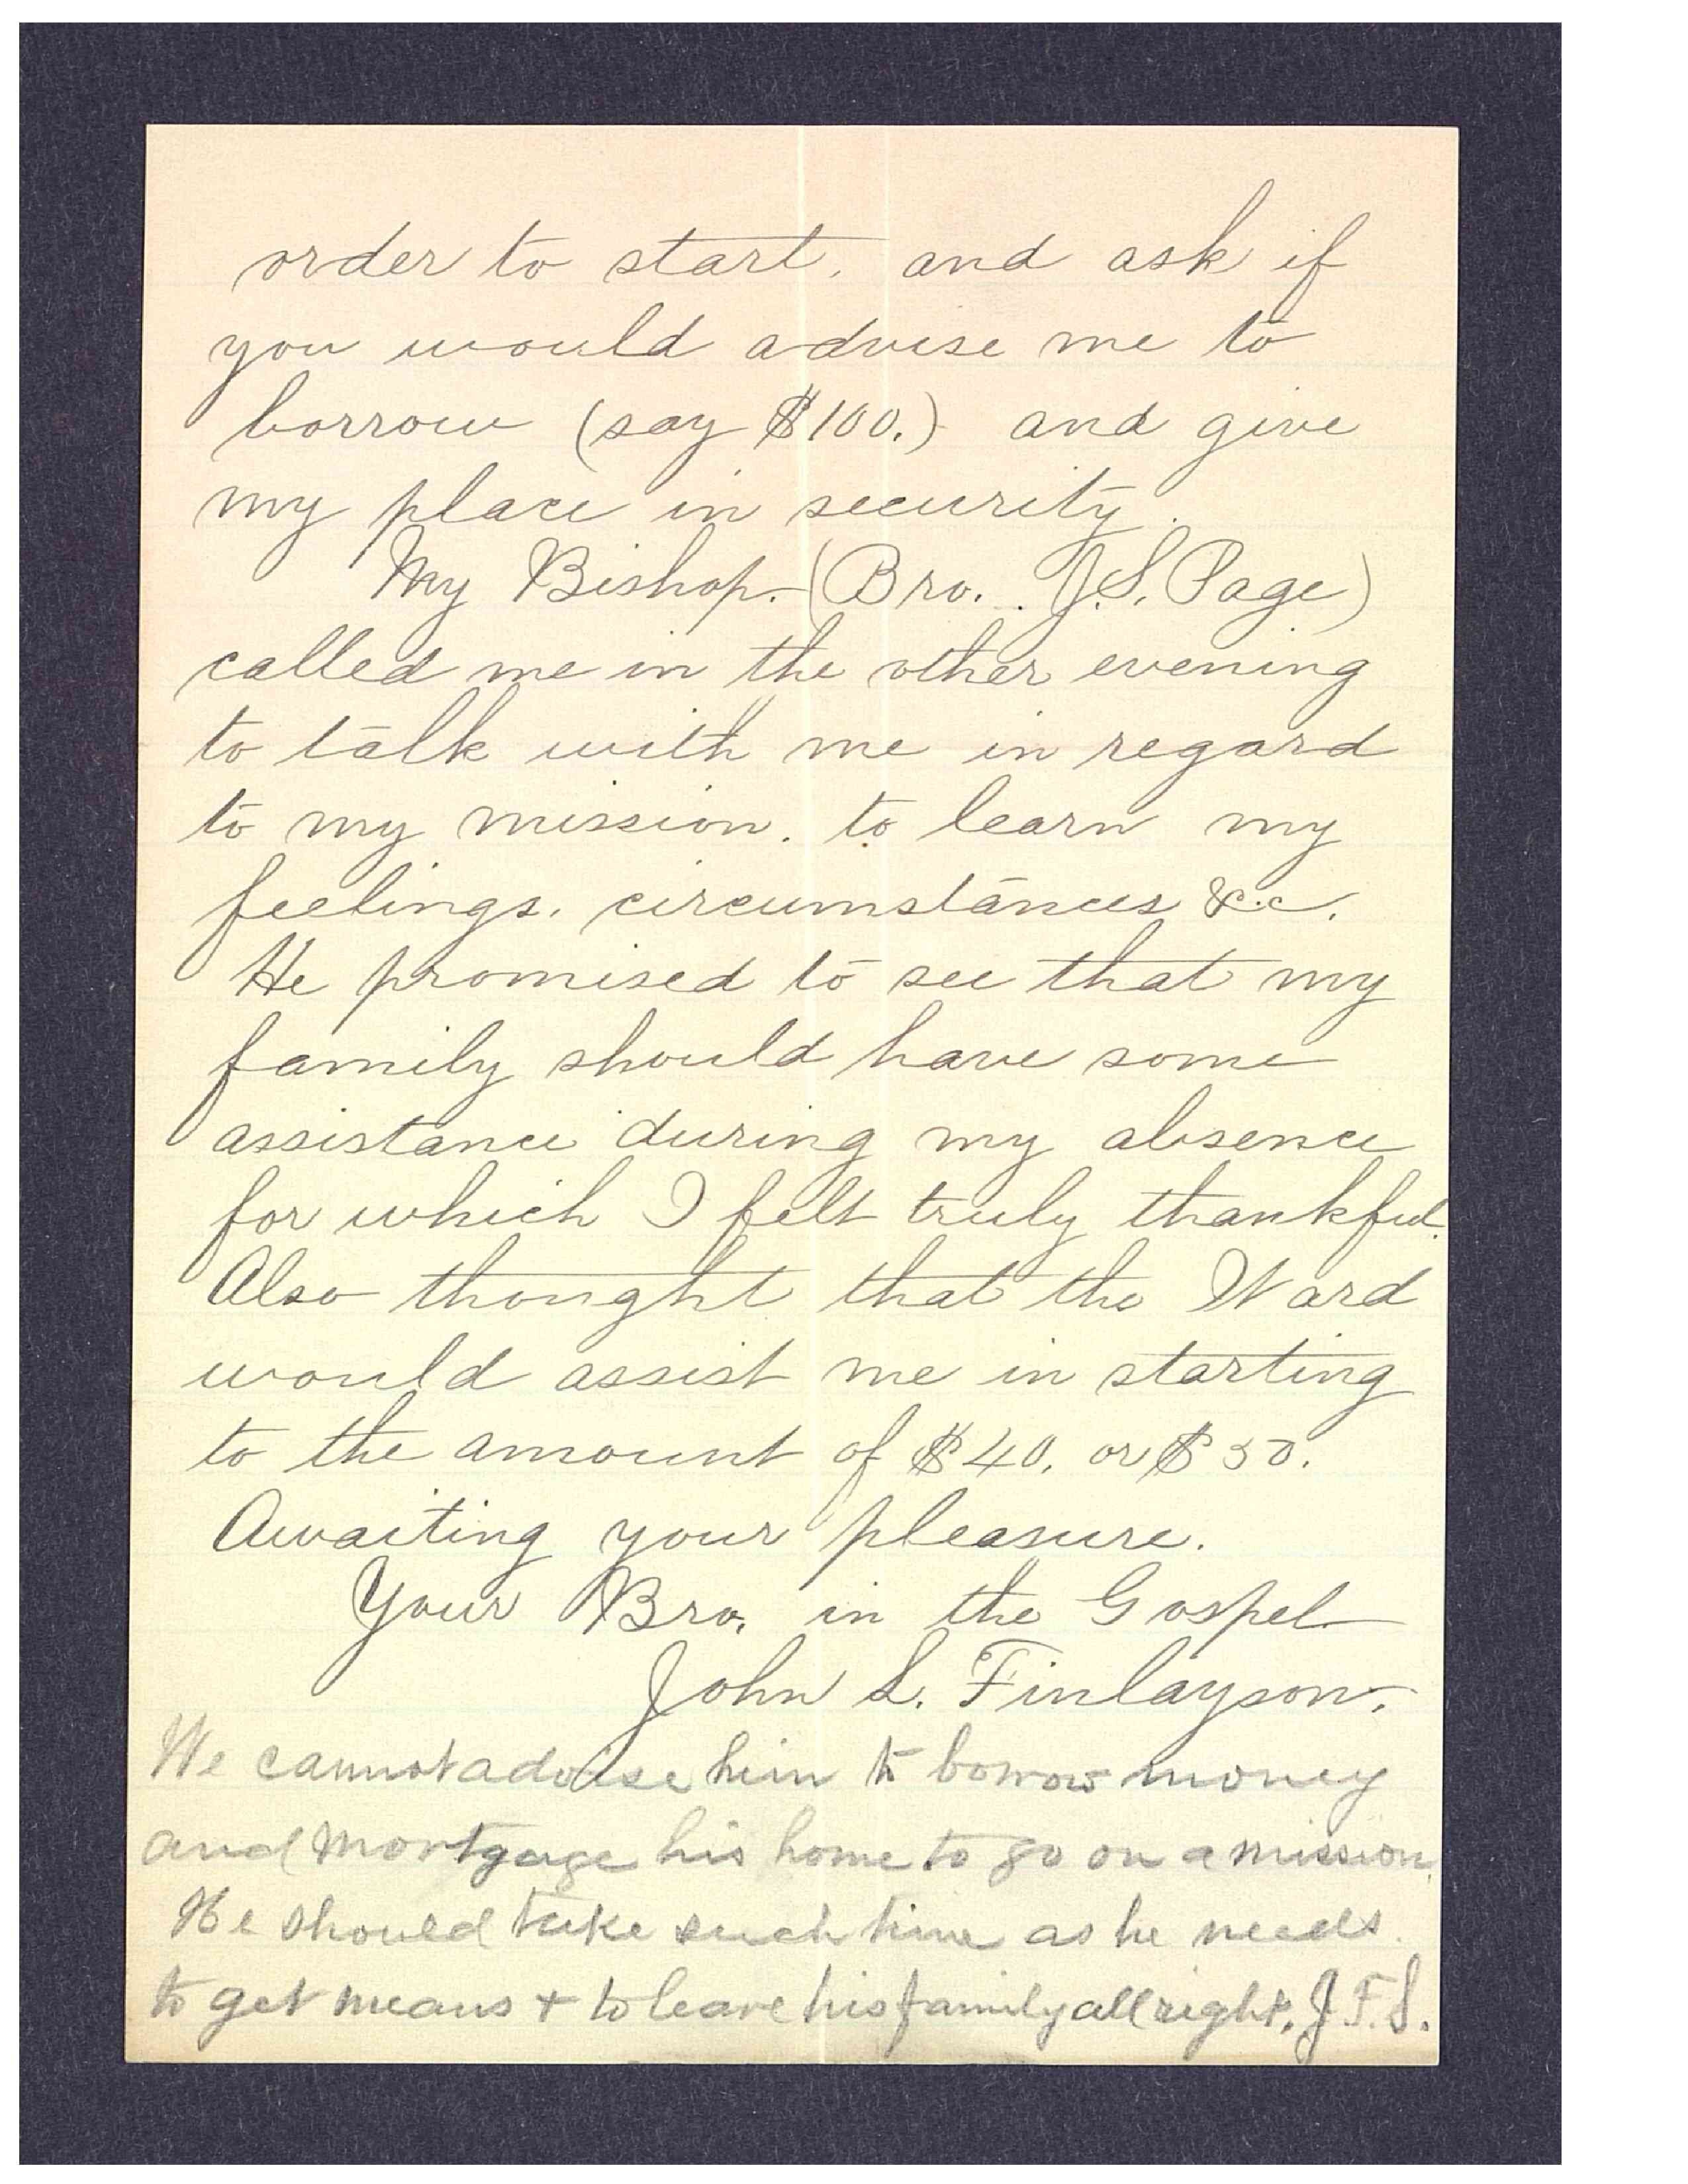 order to start. and ask if
you would advise me to
borrow (say $100.) and give
my place in security.
My Bishop. (Bro. J.S. Page)
called me in the other evening
to talk with me in regard
to my mission. to learn my
feelings. circumstances &c.
He promised to see that my
family should have some
assistance during my absence
for which I felt truly thankful.
Also thought that the Ward
would assist me in starting
to the amount of $40. or $50.
Awaiting your pleasure.
Your Bro. in the Gospel
John L. Finlayson.
We cannot advise him to borrow money
and mortgage his home to go on a mission.
He should take such time as he needs
to get means + to leave his family all right. J.F.S.